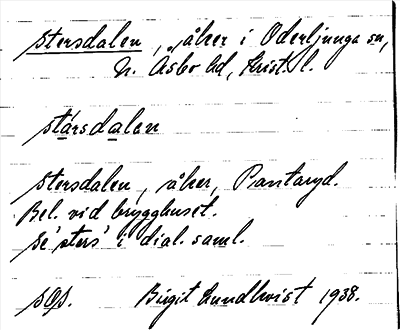 Stersdalen, åker i Oderljunga sn,
N. Åsbo hd, Krist. l.
stársdalen
Stersdalen, åker, Pantaryd.
Bel. vid brygghuset.
Se 'sters' i dial. saml.
Birgit Lundkvist 1938.